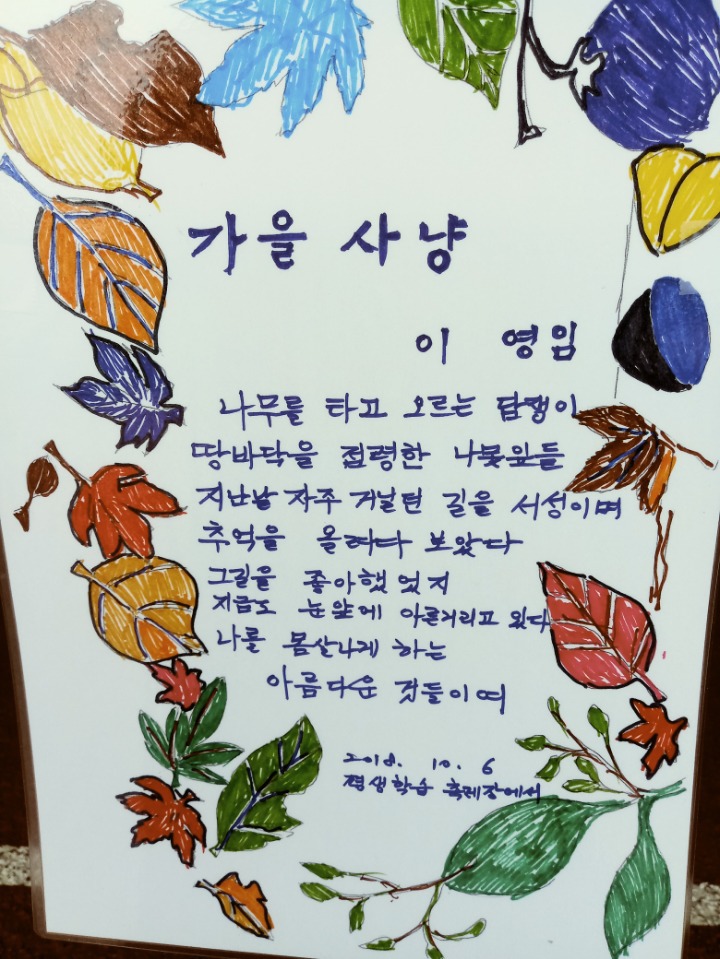 가을 사냥
이 영임
나무를 타고 오르는 담쟁이
땅바닥을 점령한 나뭇잎들
지난날 자주 거닐던 길을 서성이며
추억을 올려다 보았다
그길을 좋아했었지
지금도 눈앞에 아른거리고 있다
나를 몸살나게 하는
아름다운 것들이여
2018. 10. 6
평생학습 축제장에서